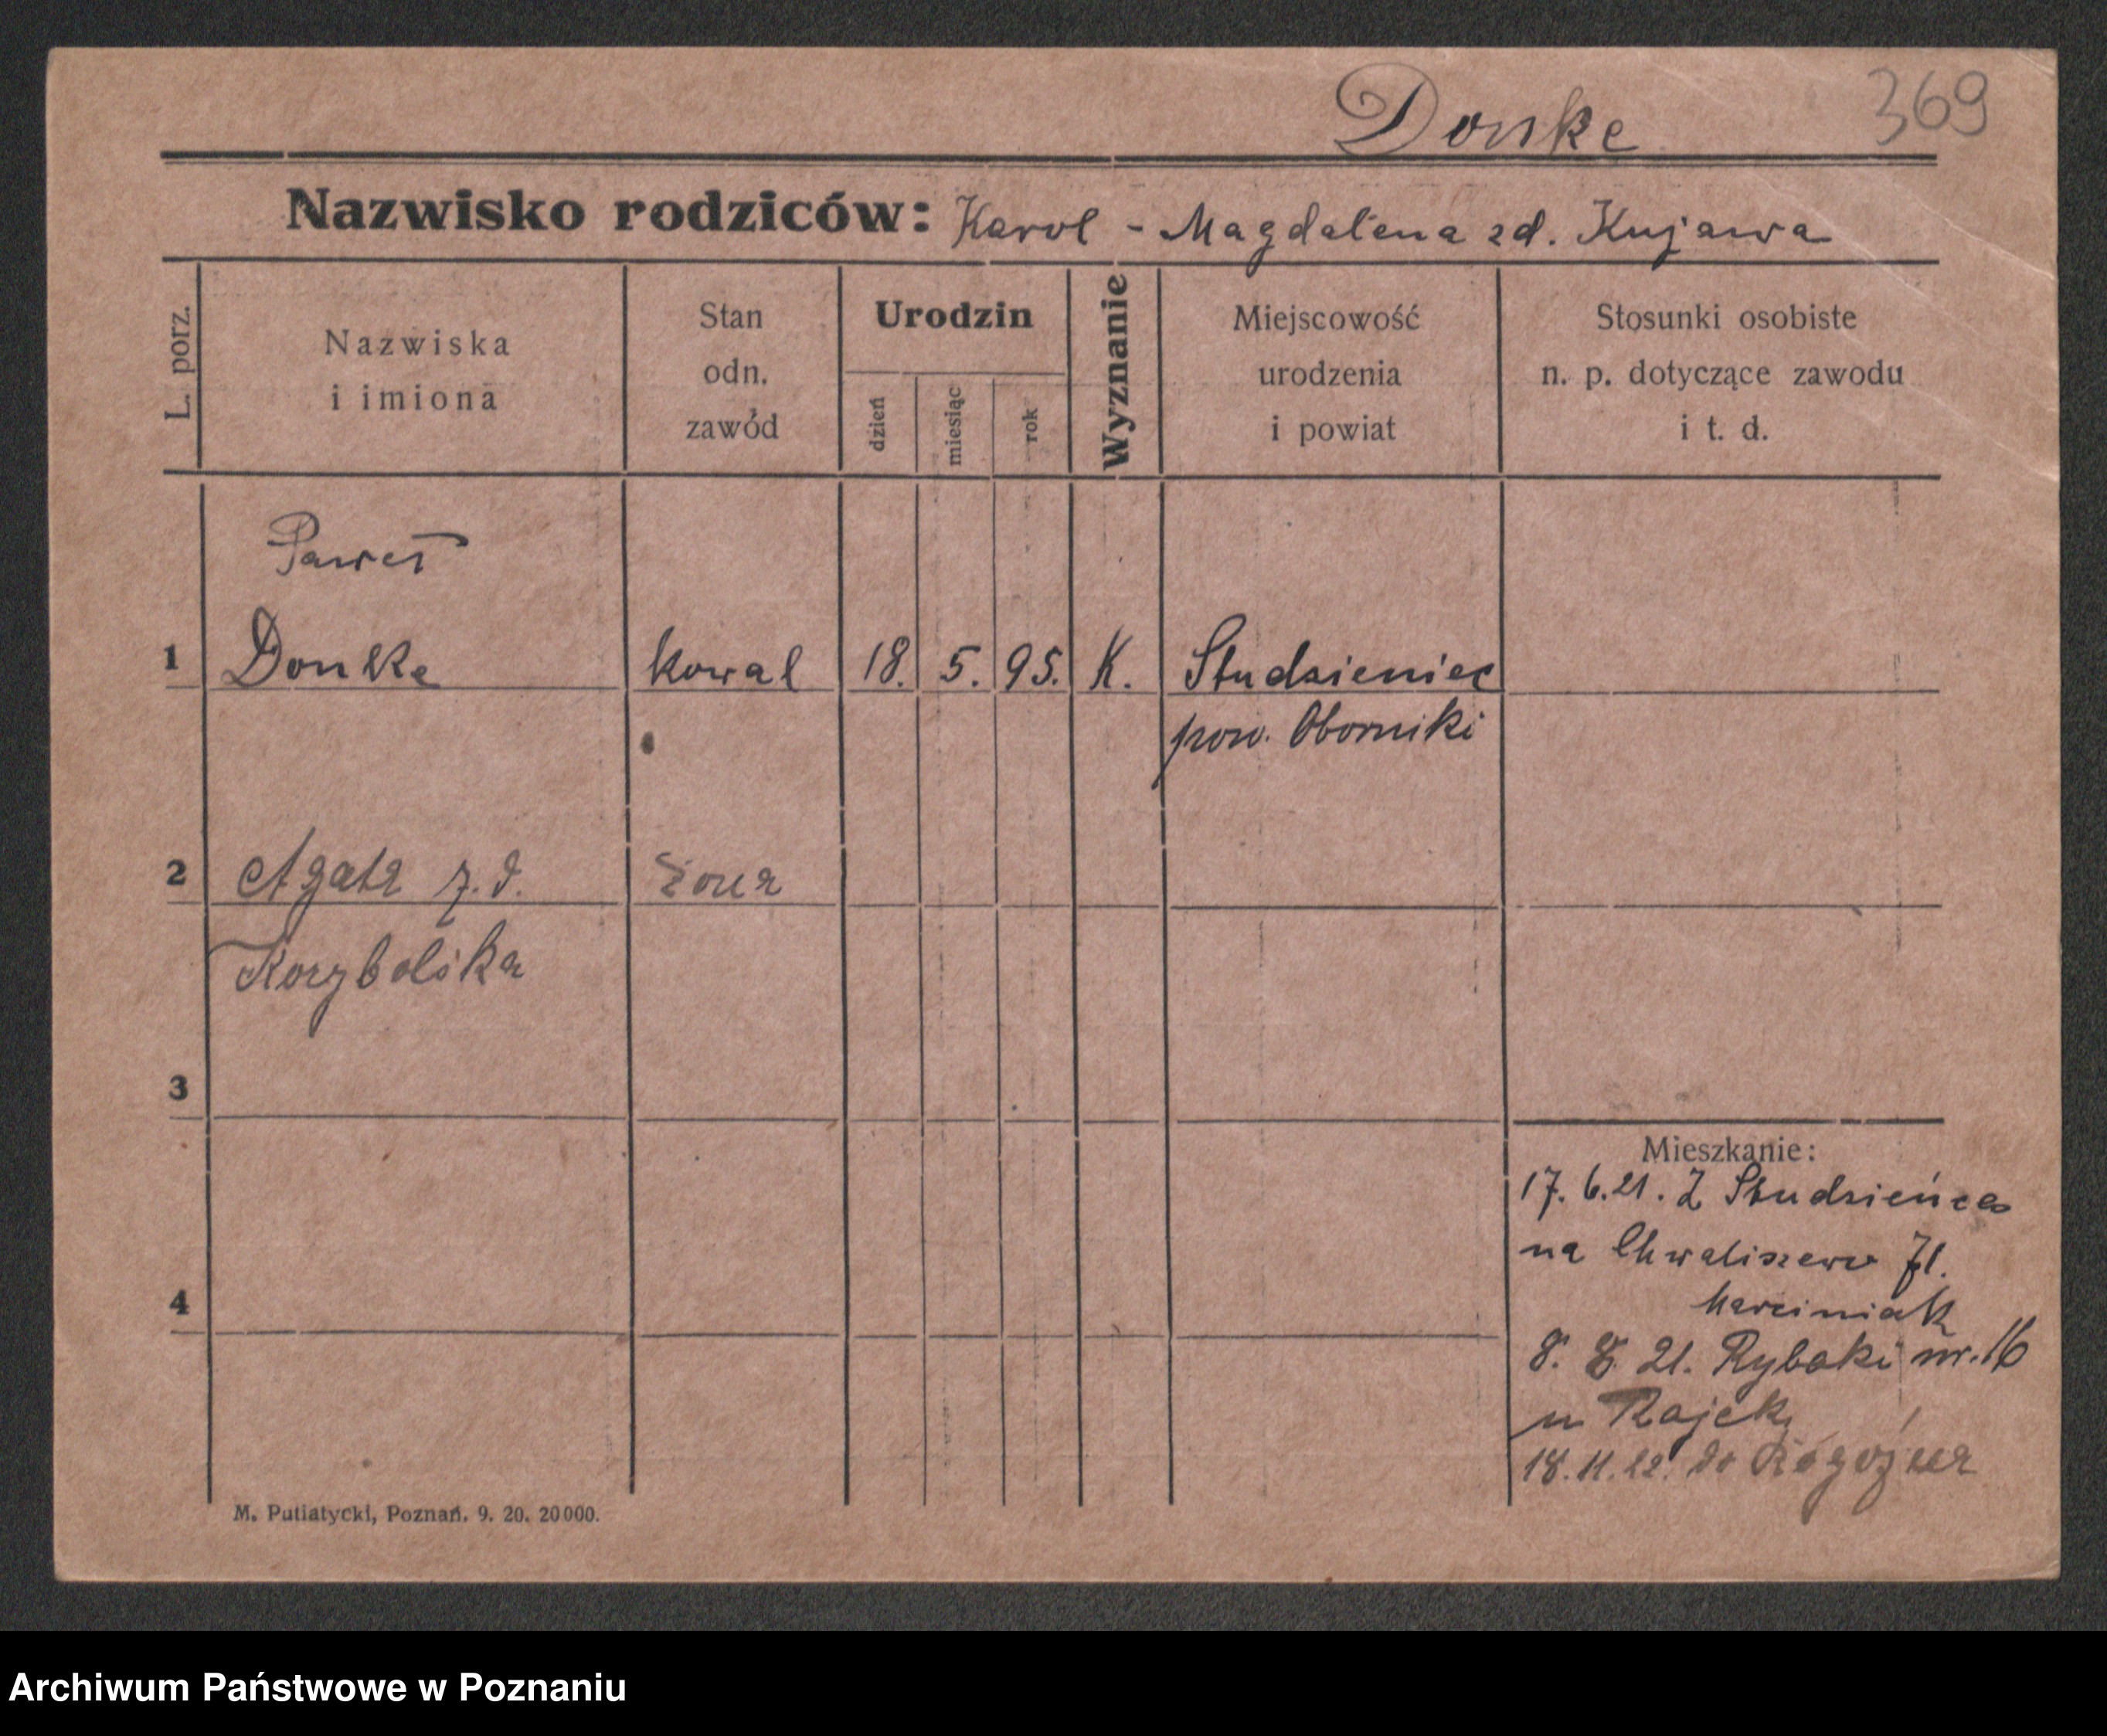 Donke 369
Nazwisko rodziców: Karol - Magdalena zd. Kujawa
L. porz.
Nazwiska
i imiona
Stan
odn.
zawód
Urodzin
dzień
miesiąc
rok
Wyznanie
Miejscowość
urodzenia
i powiat
Stosunki osobiste
n. p. dotyczące zawodu
i t. d.
Paweł
1 Donke kowal 18. 5. 95. K. Studzieniec
pow. Oborniki
2 Agata z. d. żona
3
4
Mieszkanie:
17. 6. 21. Z Studzieńca
na Chwaliszewo 71.
Marciniak
8. 8. 21. Rybaki nr. 16
u Rajek
18. 11. 22. do Rogoźna
M. Putiatycki, Poznań. 9. 20. 20000.
Archiwum Państwowe w Poznaniu